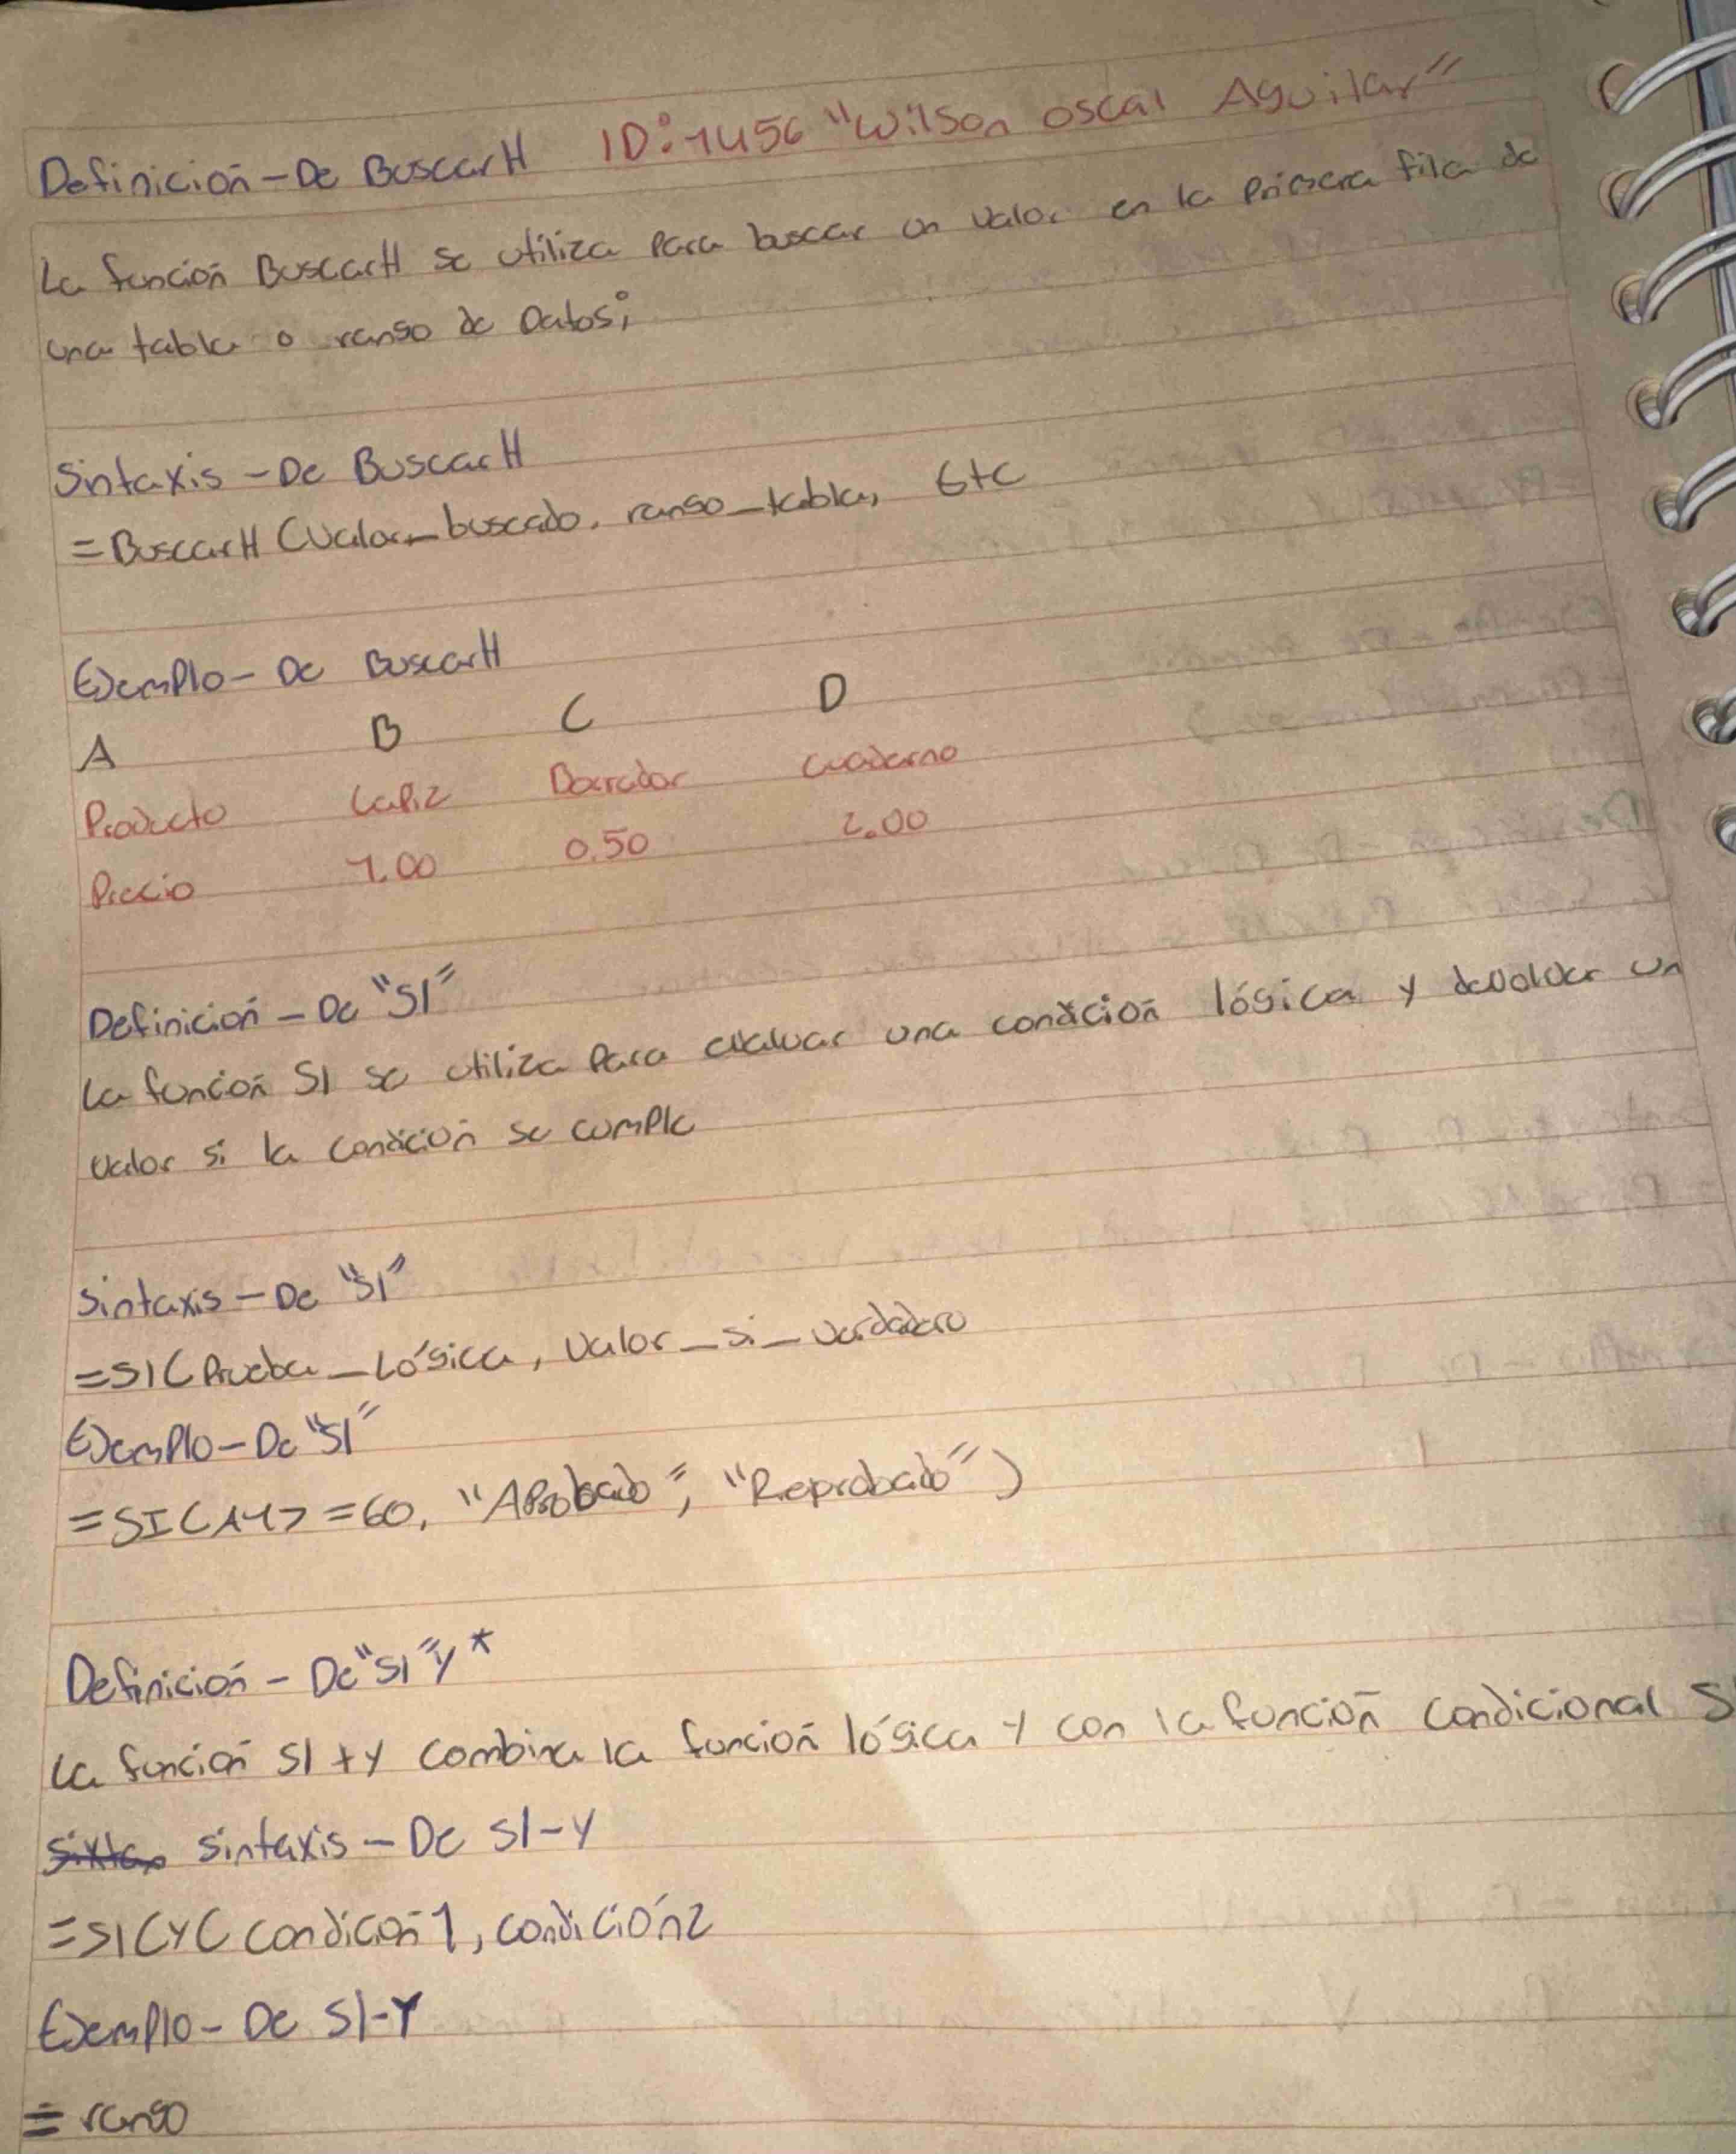 Definición - De BuscarH ID: 1456 "Wilson oscal Aguilar"
La función BuscarH se utiliza Para buscar un valor en la Primera fila de
una tabla o rango de Datos;
Sintaxis - De BuscarH
= BuscarH (Valor_buscado, rango_tabla, Etc
Ejemplo - De BuscarH
A B C D
Producto Lapiz Borrador cuaderno
Precio 1.00 0.50 2.00
Definición - De "SI"
La función SI se utiliza Para evaluar una condición lógica y devolver un
valor si la condición se cumple
Sintaxis - De "SI"
=SI(Prueba_Lógica, Valor_si_verdadero
Ejemplo - De "SI"
=SI(A1>=60, "APRobado", "Reprobado")
Definición - De "SI" y *
La función SI + y combina la función lógica Y con la función condicional SI
sintaxis - De SI-Y
=SI(Y(condición1, condición2
Ejemplo - De SI-Y
= rango